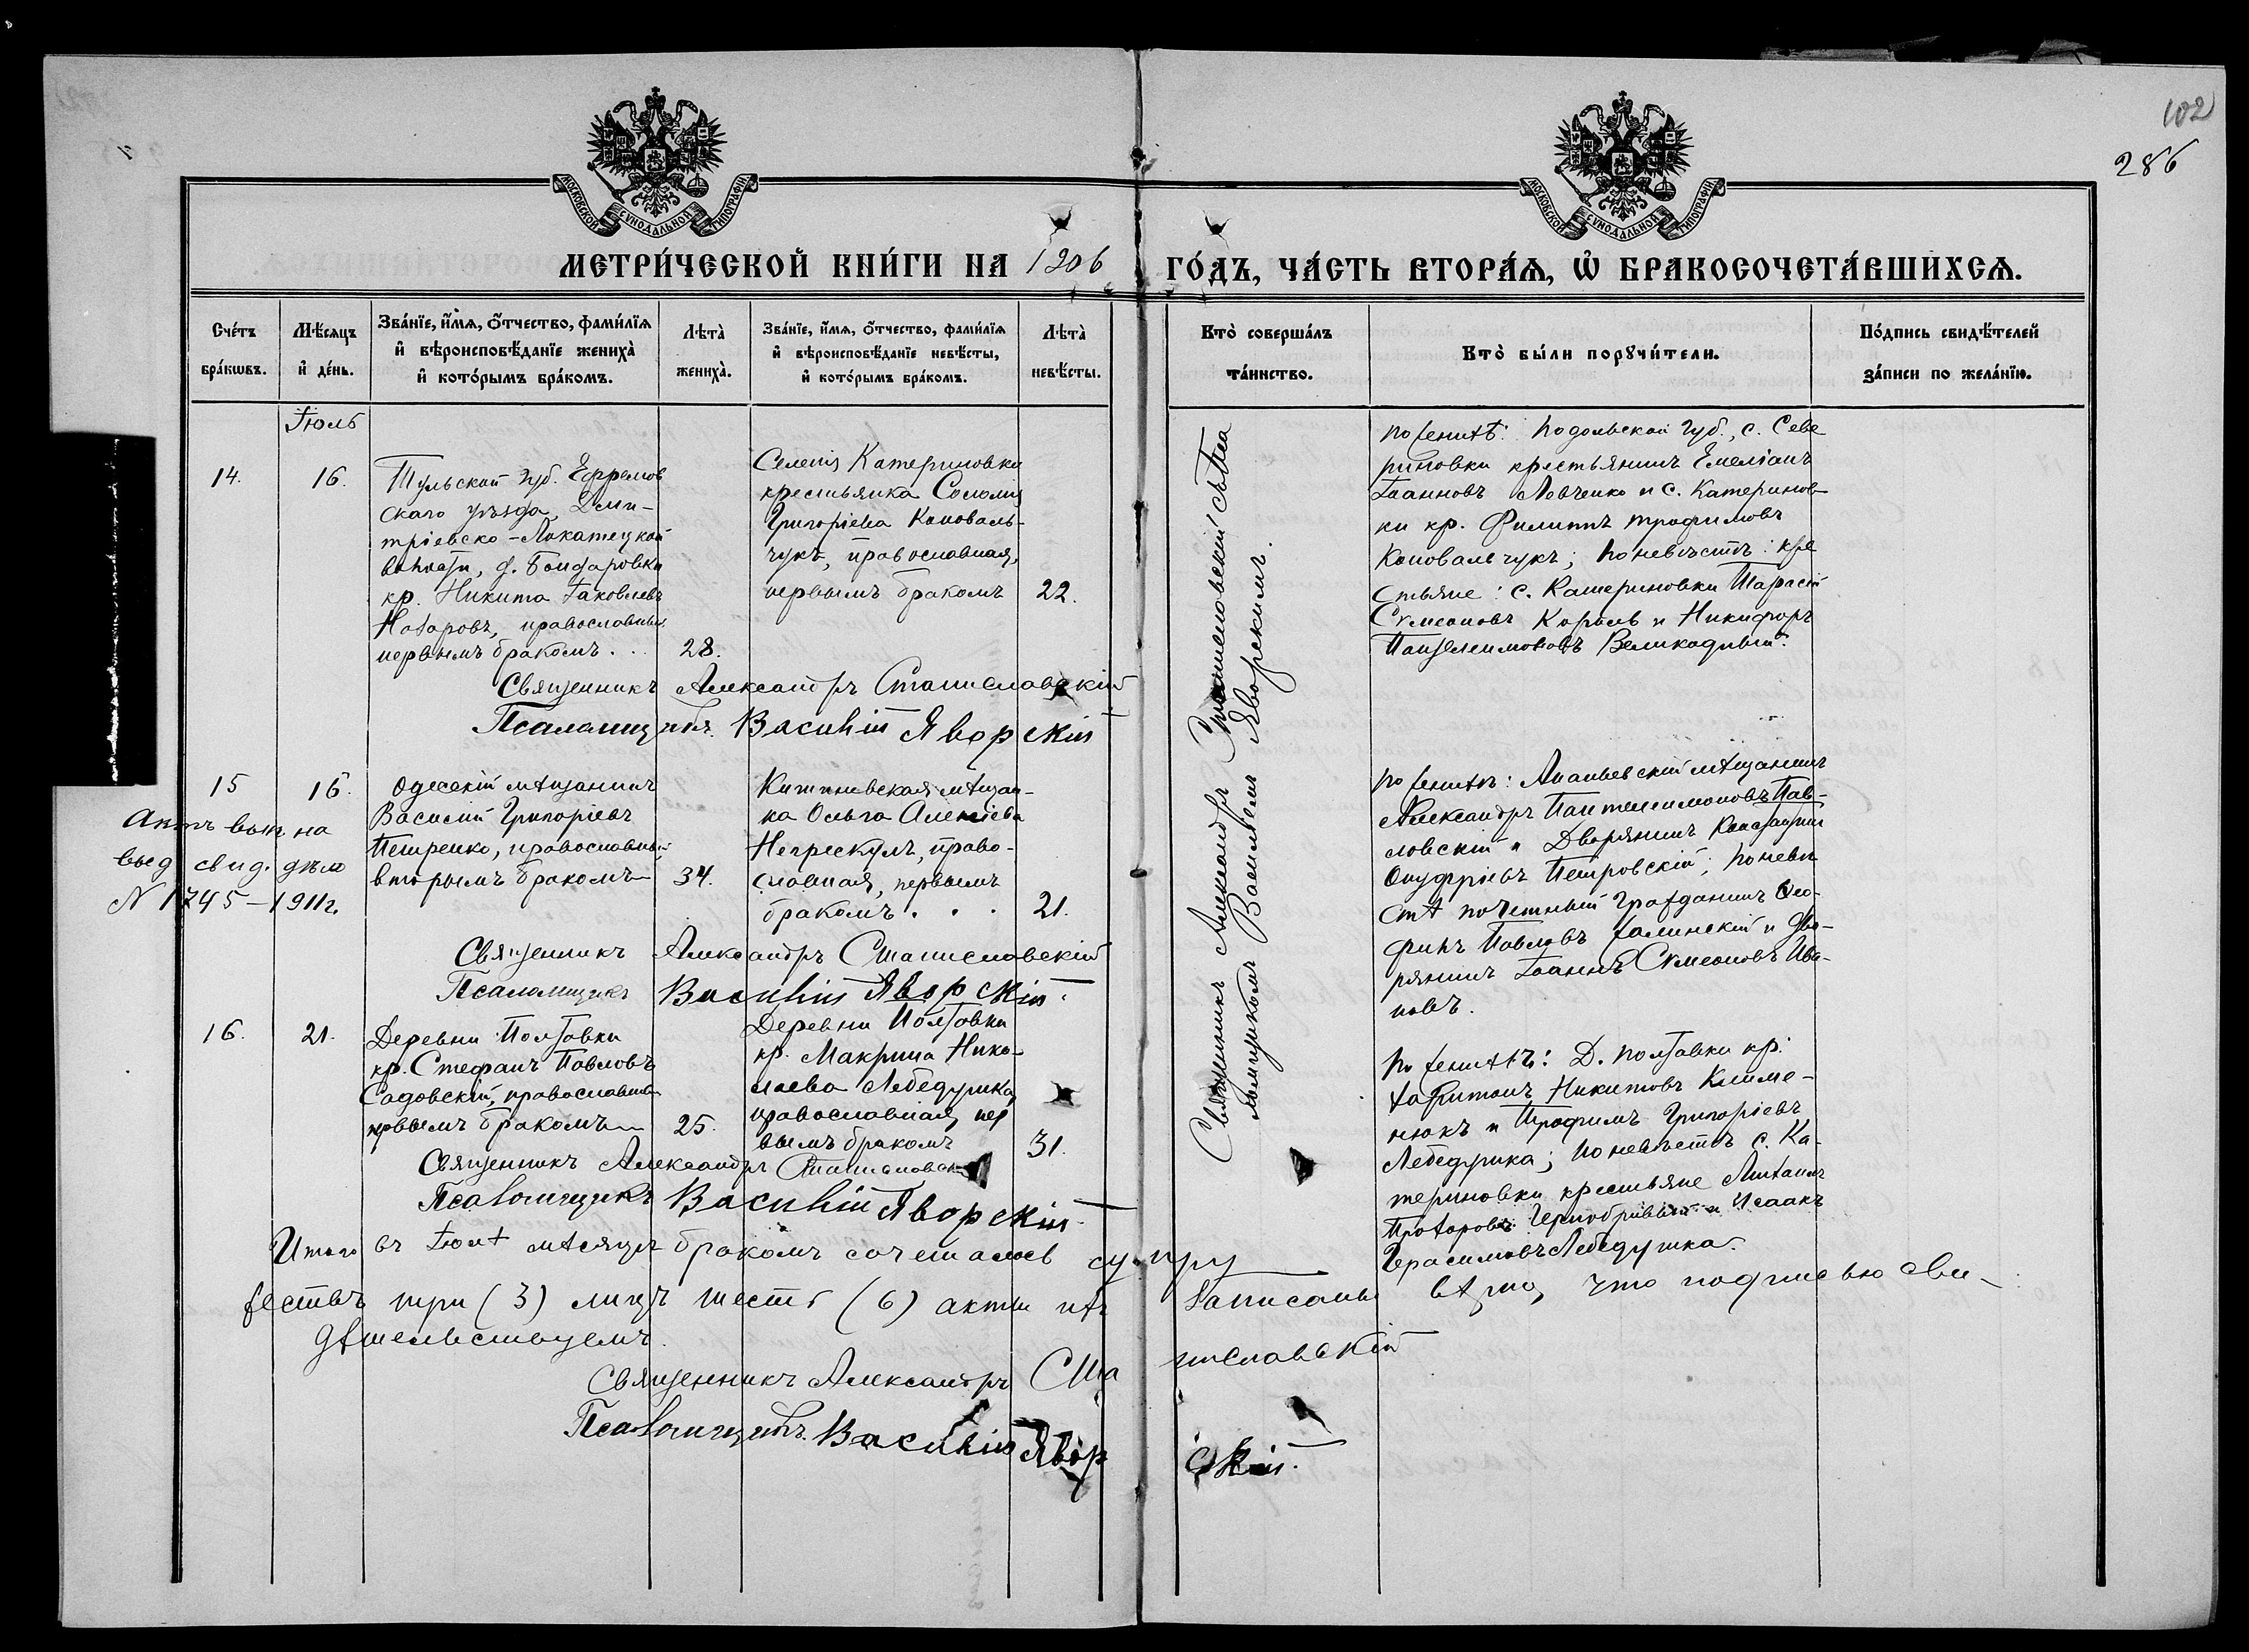 102
286
МОСКОВСКОЙ СѴНОДАЛЬНОЙ ТИПОГРАФІИ
МОСКОВСКОЙ СѴНОДАЛЬНОЙ ТИПОГРАФІИ
МЕТРИ́ЧЕСКОЙ КНИ́ГИ НА 1906 ГО́ДЪ, ЧА́СТЬ ВТОРА́Я, Ѡ БРАКОСОЧЕТА́ВШИХСѦ.
Сче́тъ бра́кѡвъ.
Мѣ́сяцъ и҆ де́нь.
Зва́нїе, и҆́мя, ѻ҆́тчество, фами́лїя и҆ вѣроисповѣ́данїе жениха̀ и҆ кото́рымъ бра́комъ.
Лѣта̀ жениха̀.
Зва́нїе, и҆́мя, ѻ҆́тчество, фами́лїя и҆ вѣроисповѣ́данїе невѣ́сты, и҆ кото́рымъ бра́комъ.
Лѣта̀ невѣ́сты.
Кто̀ соверша́лъ та́инство.
Кто̀ бы́ли порꙋчи́тели.
По́дпись свидѣ́телей за́писи по жела́нїю.
Іюль
14.
16.
Тульской губ. Ефремов
скаго уѣзда, Дми-
тріевско-Локатецкой
волости, д. Бондаровки
кр. Никита Іаковлевъ
Назаровъ, православный
первымъ бракомъ . . .
28.
Селенія Катериновки
крестьянка Соломія
Григоріева Коноваль-
чукъ, православная,
первымъ бракомъ
22.
по женихѣ: Подольской губ., с. Севе
риновки крестьянинъ Емеліанъ
Іоанновъ Левченко и с. Катеринов-
ки кр. Филиппъ Трофимовъ
Коновальчукъ; по невѣстѣ: кре
стьяне: с. Катериновки Тарасій
Сѵмеоновъ Король и Никифоръ
Пантелеимоновъ Великодный.
Священникъ Александръ Станиславскій
Псаломщикъ Василій Яворскій
15
16.
Одесскій мѣщанинъ
Василій Григоріевъ
Петренко, православный
вторымъ бракомъ
34.
Кишиневская мѣщан-
ка Ольга Алексіева
Непрескулъ, право-
славная, первымъ
бракомъ . . .
21.
Актъ вып на
выд свид. дѣло
N 1745-1911г.
по женихѣ: Ананьевскій мѣщанинъ
Александръ Пантелеимоновъ Пав-
ловскій и Дворянинъ Константинъ
Онуфріевъ Петровскій; по невѣ
стѣ почетный гражданинъ Ѳео-
филъ Павловъ Галинскій и дво-
рянинъ Іоаннъ Сѵмеоновъ Ива-
новъ.
Священникъ Александръ Станиславскій
Псаломщикъ Василій Яворскій.
16.
21.
Деревни Полтавки
кр. Стефанъ Павловъ
Садовскій, православный
первымъ бракомъ
25.
Деревни Полтавки
кр. Макрина Нико-
лаева Лебедурика,
православная, пер
вымъ бракомъ
31.
по женихѣ: Д. Полтавки кр.
Харитонъ Никитовъ Климе-
нюкъ и Трофимъ Григоріевъ
Лебедурика; по невѣстѣ с. Ка-
териновки крестьяне Михаилъ
Прохоровъ Чернобривый и Исаакъ
Герасимовъ Лебедушка.
Священникъ Александръ Станиславскій
Псаломщикъ Василій Яворскій
Священникъ Александръ Станиславскій съ Пса
ломщикомъ Василіемъ Яворскимъ.
Итого въ Іюлѣ мѣсяцѣ бракомъ сочеталось супру
жествъ три (3) лицъ шесть (6) акты ихъ записаны вѣрно, что подписью сви-
дѣтельствуемъ.
Священникъ Александръ Станиславскій
Псаломщикъ Василій Яворскій.